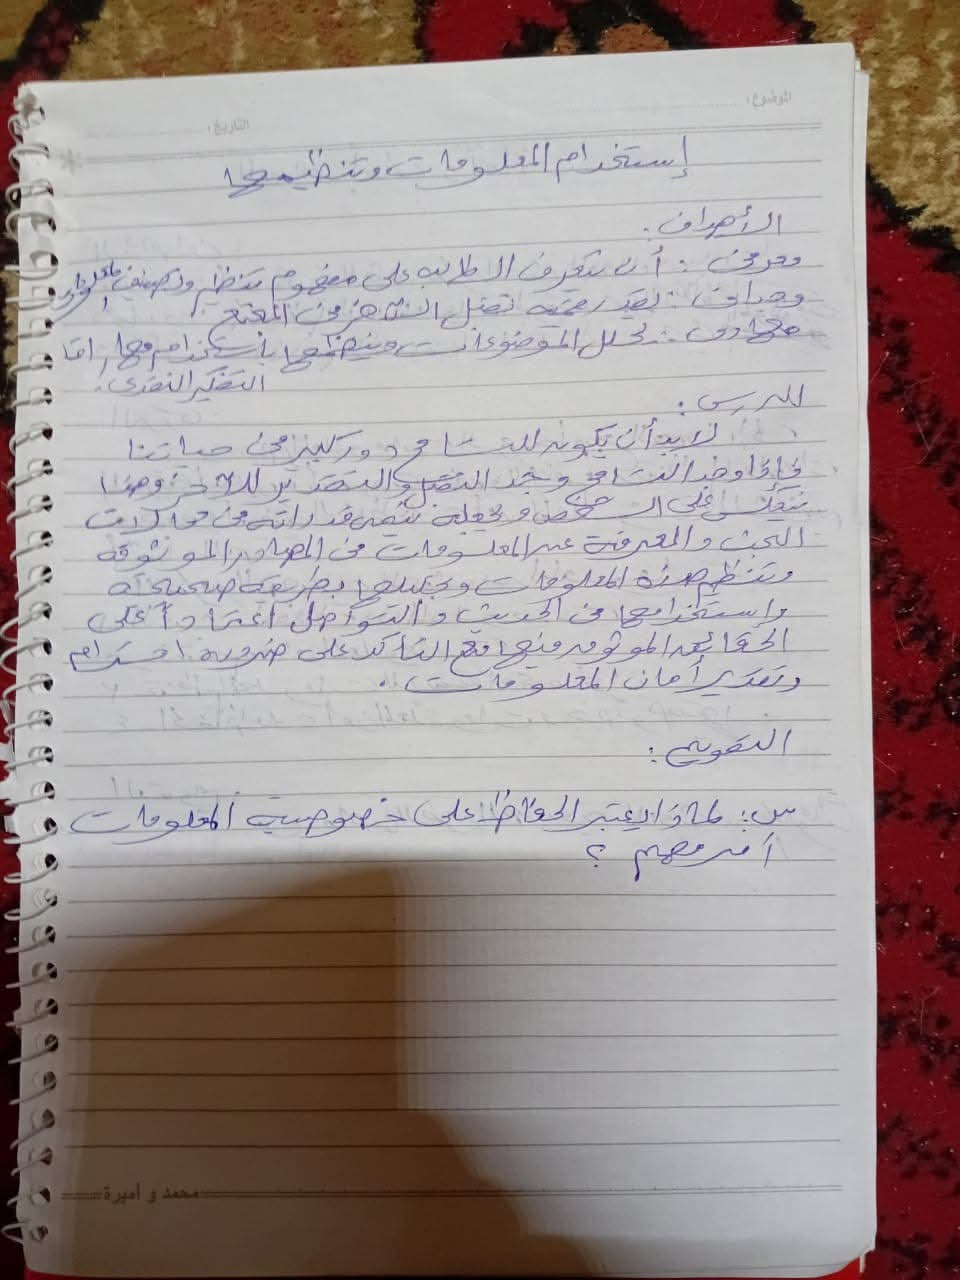 الموضوع:
التاريخ:
إستخدام المعلومات وتنظيمها
الأهداف.
معرفي: أن يتعرف الطالب على مفهوم تنظيم وتصنيف المعلومات
وجداني: تقدر قيمة تقبل التسامح في المجتمع
مهاري: تحلل الموضوعات وينظمها بأستخدام مها
التفكير النقدي.
الدرس:
لابد أن يكون للتسامح دور كبير في حياتنا
فإذا وجد التسامح وجد التقبل والتقدير للآخر وهذا
ينعكس على الشخص ويجعله ينمي قدراته في
البحث والمعرفة عبر المعلومات في المصادر الموثوقة
وتنظيم هذه المعلومات وتحليلها بطريقة صحيحة
وإستخدامها في الحديث والتواصل اعتماداً على
الحقائق الموثوق منها مع التأكد على ضرورة احترام
وتقدير أمان المعلومات.
التقويم:
س: لماذا يعتبر الحفاظ على خصوصية المعلومات
أمر مهم ؟
محمد و أميرة